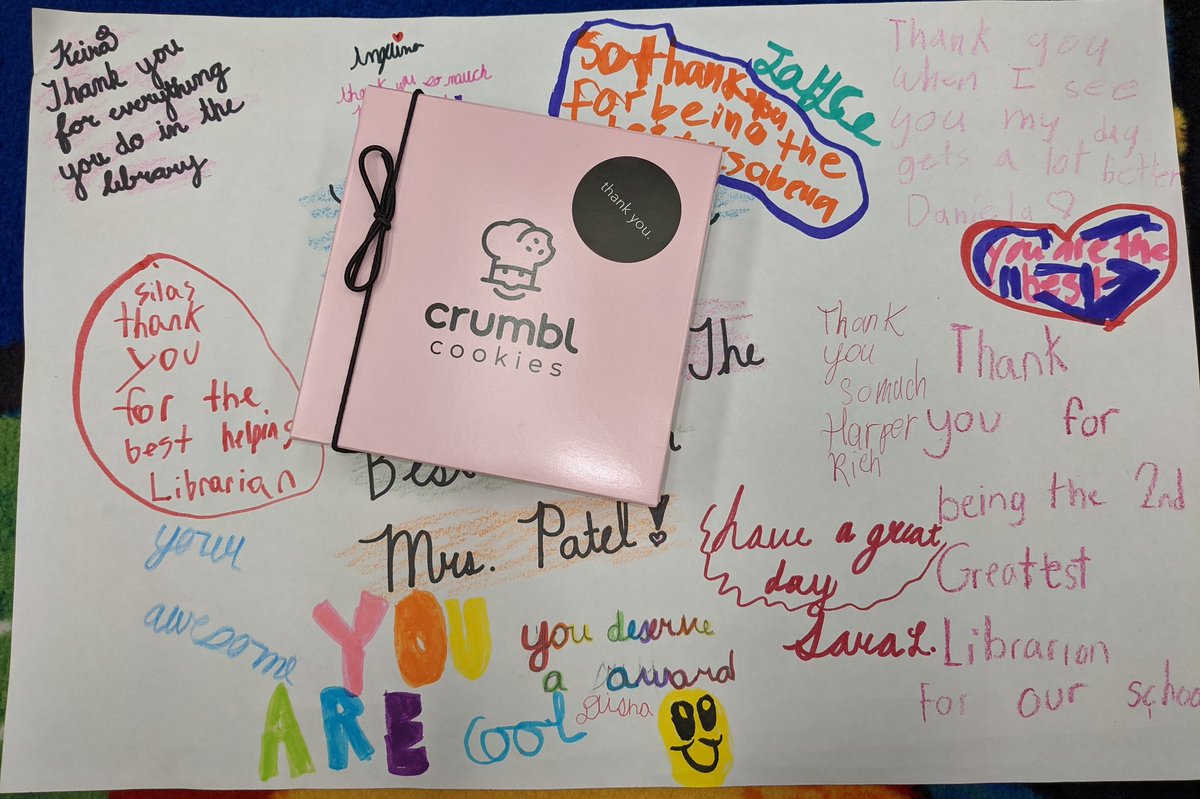 Keira
Thank you
for everything
you do in the
library
Angelina
thank you so much
So thank you
for being the
Isabella
Thank you
when I see
you my day
gets a lot better
Daniela
you are the
best
thank you.
crumbl
cookies
The
Best
Mrs. Patel!
silas
thank
you
for the
best helping
Librarian
Thank
you
so much
Harper
Rich
Thank
you for
being the 2nd
Greatest
Librarian
for our school
have a great
day
Sara L.
your
awesome
YOU
ARE cool
you deserve
a award